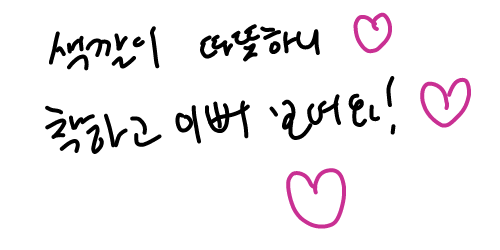 색깔이 따뜻하니
착하고 이뻐 보여요!